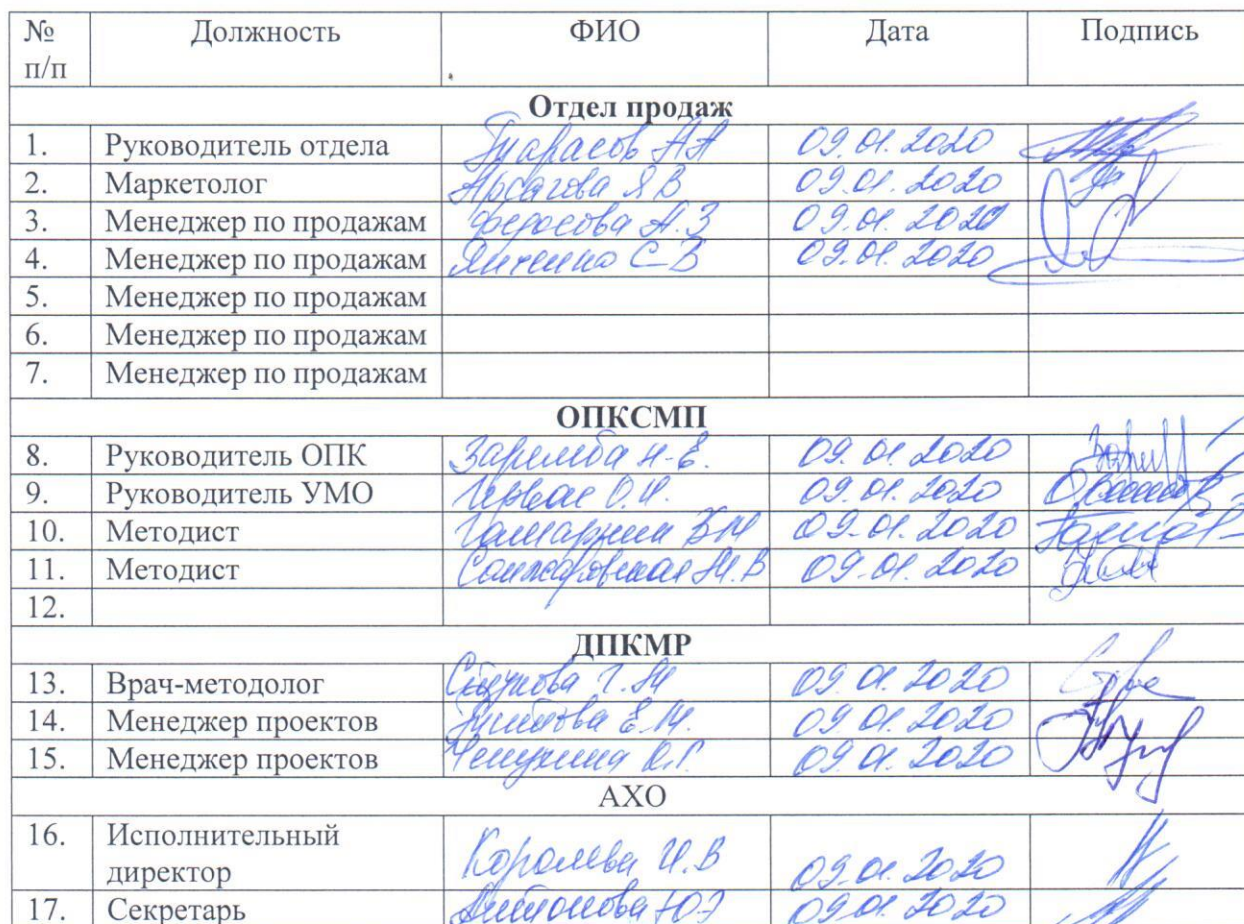 № п/п Должность ФИО Дата Подпись
Отдел продаж
1. Руководитель отдела Тарасов А.А 09.01.2020
2. Маркетолог Я В 09.01.2020
3. Менеджер по продажам Федосова А.З 09.01.2020
4. Менеджер по продажам С-В 09.01.2020
5. Менеджер по продажам
6. Менеджер по продажам
7. Менеджер по продажам
ОПКСМП
8. Руководитель ОПК Заремба Н-Е. 09.01.2020
9. Руководитель УМО 09.01.2020
10. Методист 09.01.2020
11. Методист 09.01.2020
12.
ДПКМР
13. Врач-методолог Г.М 09.01.2020
14. Менеджер проектов Е.М. 09.01.2020
15. Менеджер проектов 09.01.2020
АХО
16. Исполнительный
директор Королева И.В 09.01.2020
17. Секретарь Ю Э 09.01.2020